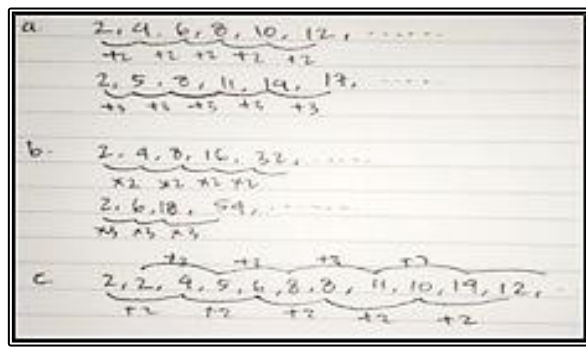 a. 2, 4, 6, 8, 10, 12, ......
+2 +2 +2 +2 +2
2, 5, 8, 11, 14, 17, .....
+3 +3 +3 +3 +3
b. 2, 4, 8, 16, 32, .....
×2 ×2 ×2 ×2
2, 6, 18, 54, .......
×3 ×3 ×3
+3 +3 +3 +3
c 2, 2, 4, 5, 6, 8, 8, 11, 10, 14, 12, .
+2 +2 +2 +2 +2